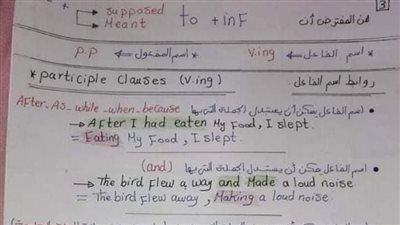 supposed
Meant
to + inF
من المفترض أن
3
p.p ← اسم المفعول * V.ing ← اسم الفاعل *
* participle Clauses (V.ing) روابط اسم الفاعل
After - As - while - when - because اسم الفاعل يمكن أن يستبدل الجملة التي بها
→ After I had eaten My Food, I slept.
= Eating My Food, I slept.
(and) اسم الفاعل يمكن أن يستبدل الجملة التي بها
→ The bird flew a way and Made a loud noise
= The bird flew away, Making a loud noise